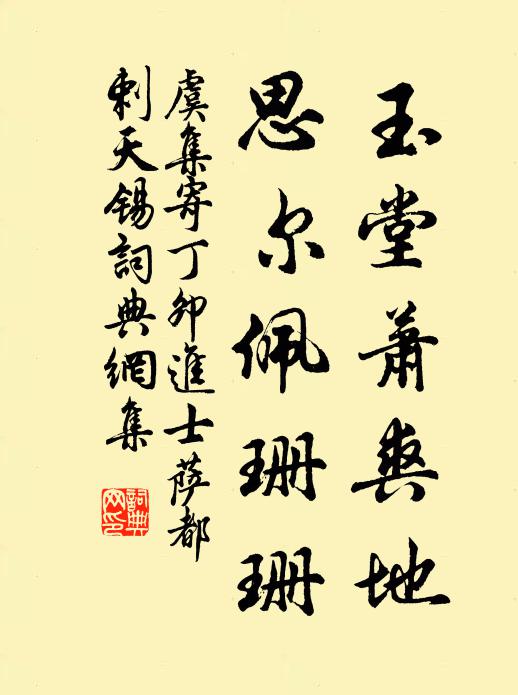 玉堂萧爽地
思尔佩珊珊
虞集寄丁卯進士萨都
刺天锡詞典網集
詞典网印